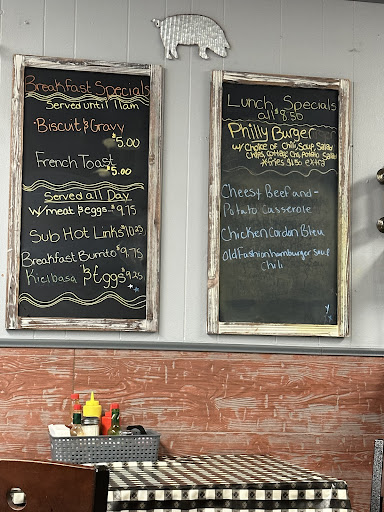 Breakfast Specials
Served until 11am
Biscuit & Gravy
$5.00
French Toast
$5.00
Served all Day
w/meat & eggs $9.75
Sub Hot Links $10.25
Breakfast Burrito $9.75
Kielbasa & Eggs $9.25
Lunch Specials
all $8.50
Philly Burger
w/ choice of Chilli, Soup, Salad
Chips, Cottage Chs, Potato Salad
Fries $1.50 extra
Cheesy Beef and
Potato Casserole
Chicken Cordon Bleu
Old Fashion hamburger
Chili